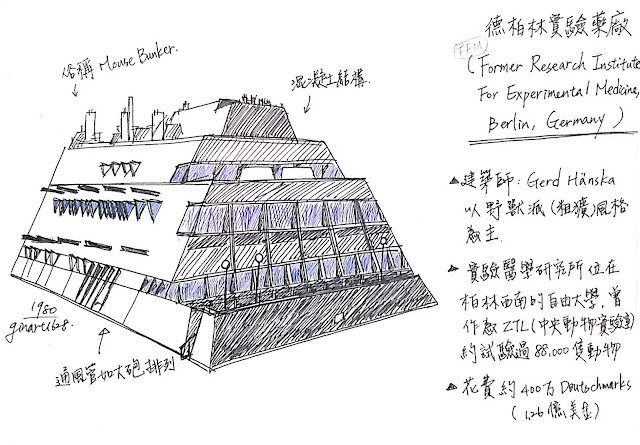 俗稱 Mouse Bunker.
混凝土結構.
1980
ginarti68.
通風管如大砲排列
德柏林實驗藥廠
FEM
(Former Research Institute
For Experimental Medicine,
Berlin, Germany)
▲建築師: Gerd Hänska
以野獸派(粗獷)風格
為主.
▲實驗醫學研究所位在
柏林西面的自由大學, 曾
作為 ZTL (中央動物實驗室)
約試驗過 88,000 隻動物
▲花費約 400万 Deutschmarks
(1.26 億美金)